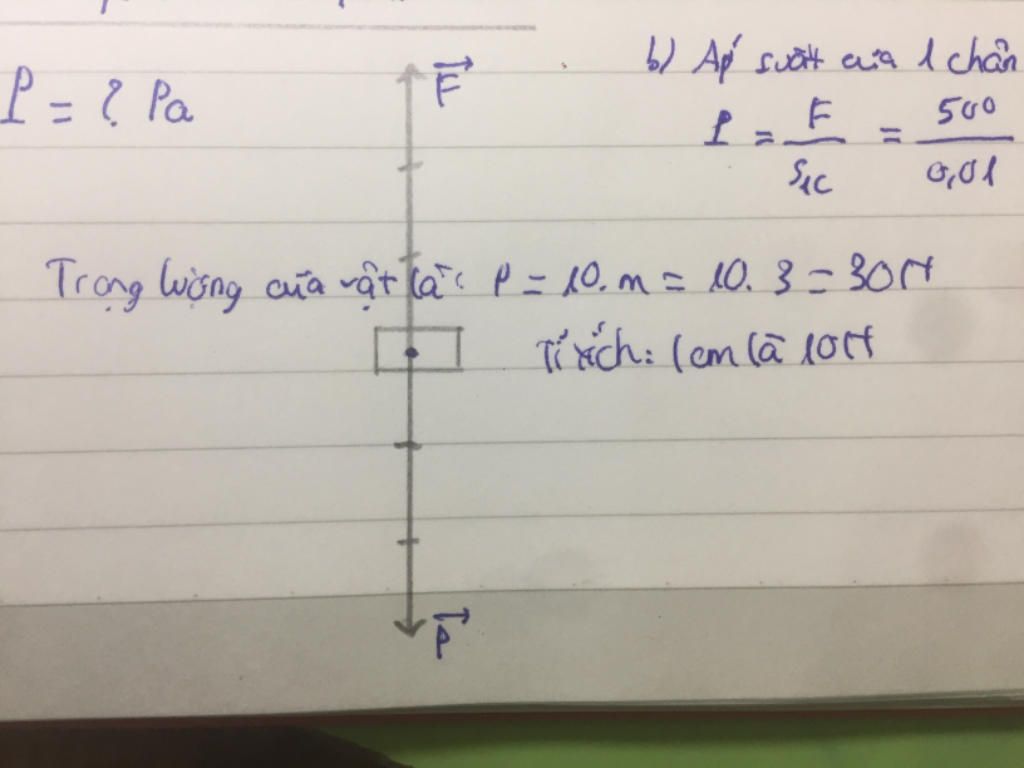 P = ? Pa
F
b) Áp suất của 1 chân
P = F / S1c = 500 / 0,01
Trọng lượng của vật là: P = 10.m = 10.3 = 30N
Tỉ xích: 1cm là 10N
P